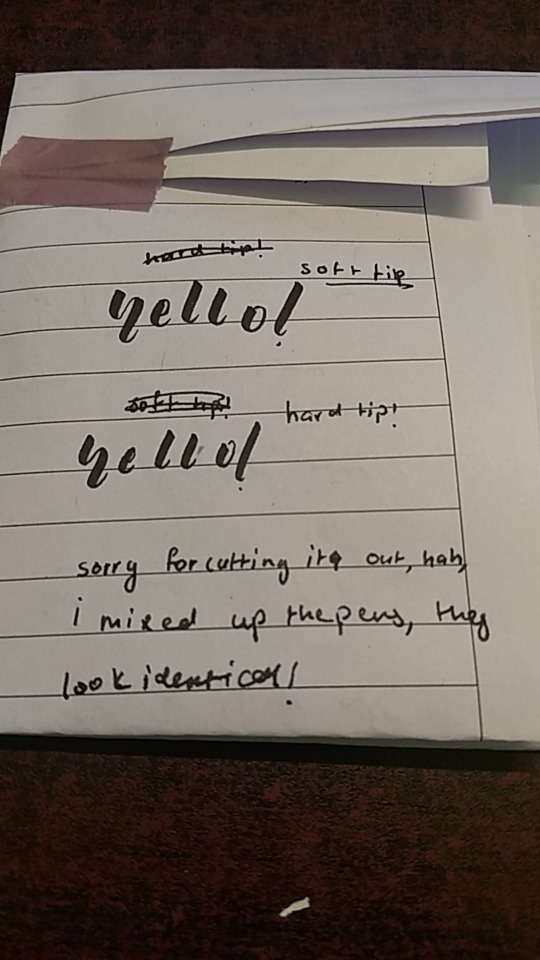 hard tip!
soft tip
hello!
soft tip!
hard tip!
hello!
sorry for cutting it out, hah,
i mixed up the pens, they
look identical!